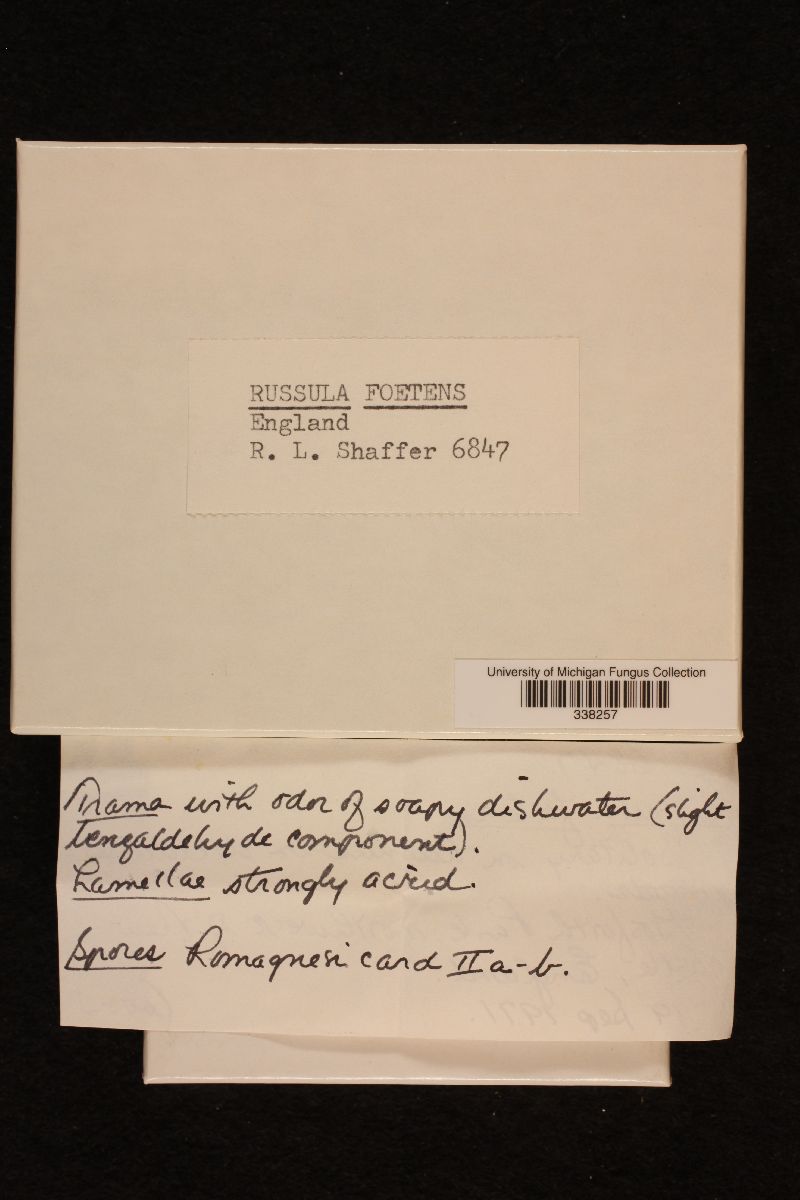 RUSSULA FOETENS
England
R. L. Shaffer 6847
University of Michigan Fungus Collection
338257
Trama with odor of soapy dishwater (slight
benzaldehyde component).
Lamellae strongly acrid.
Spores Romagnesi card II a-b.